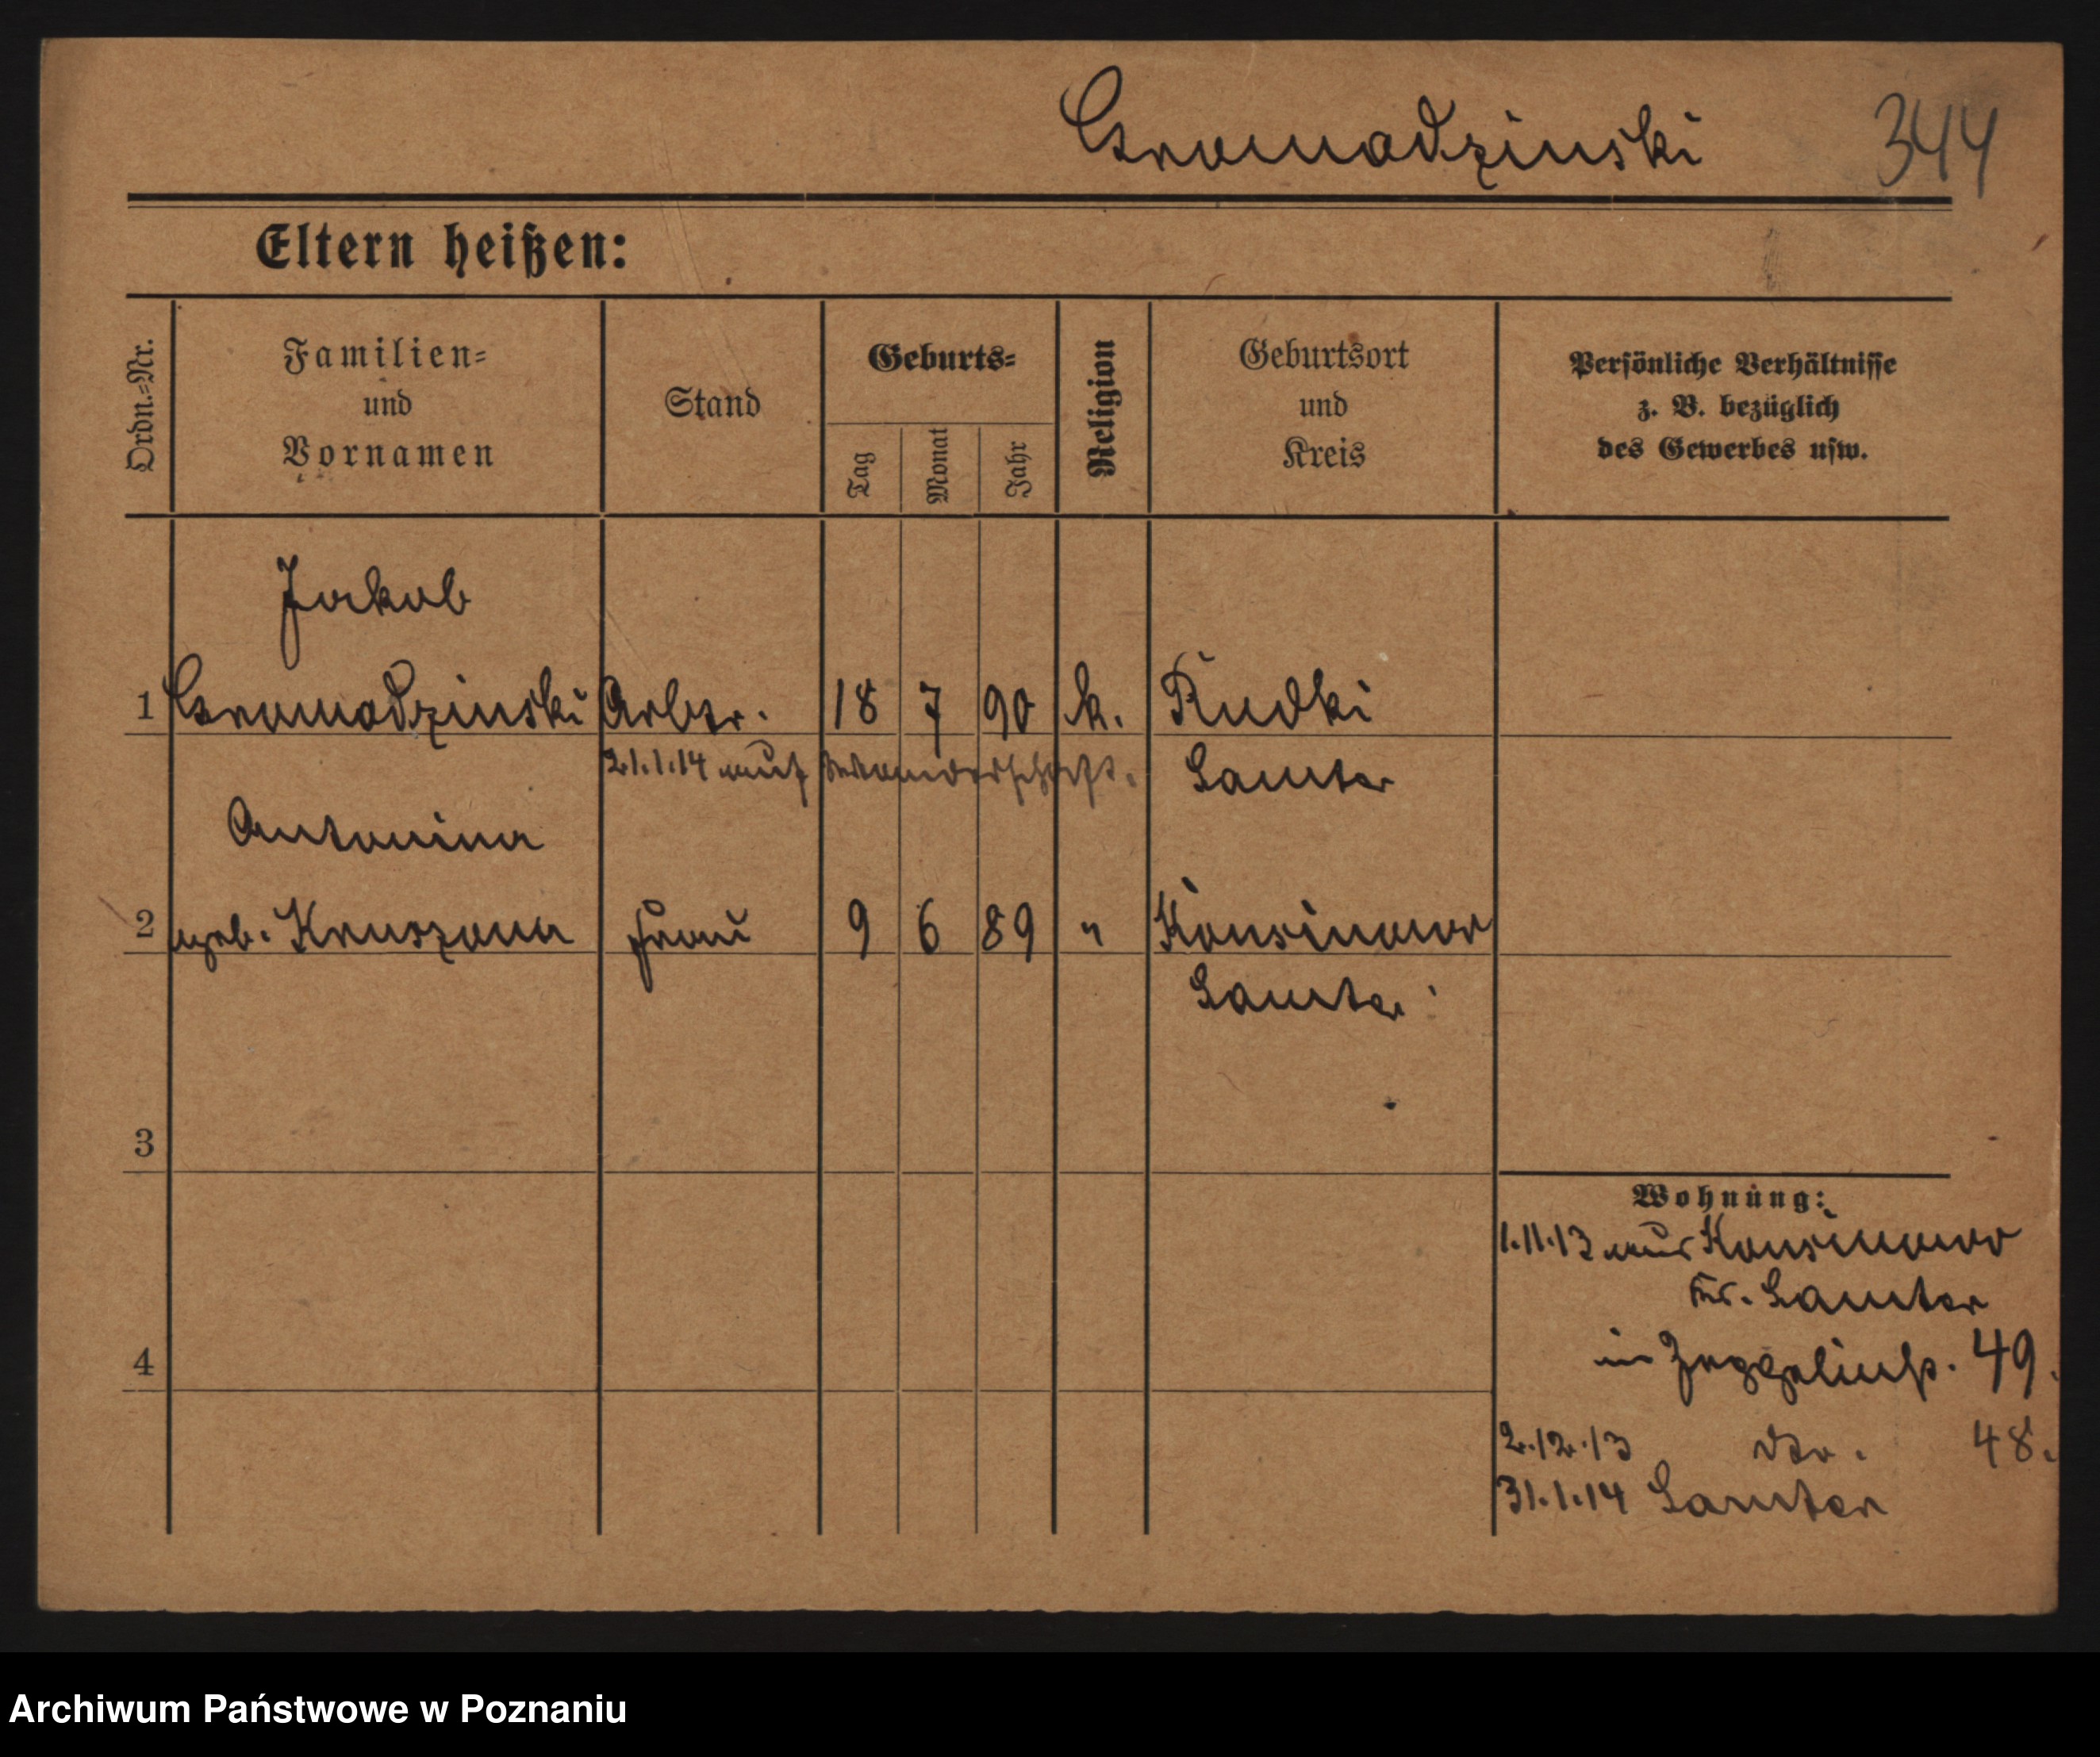 Gromadzinski 344
Eltern heißen:
Ordn.-Nr.
Familien-
und
Vornamen
Stand
Geburts-
Tag
Monat
Jahr
Religion
Geburtsort
und
Kreis
Persönliche Verhältnisse
z. B. bezüglich
des Gewerbes usw.
Jakob
1 Gromadzinski Arbtr. 18 7 90 k. Rudki
21.1.14 auf Wanderschaft. Samter
Antonina
2 geb. Kruszona Frau 9 6 89 " Konsinowo
Samter
3
4
Wohnung:
1.11.13 aus Konsinowo
Kr. Samter
in 49.
2.12.13 dto. 48.
31.1.14 Samter
Archiwum Państwowe w Poznaniu